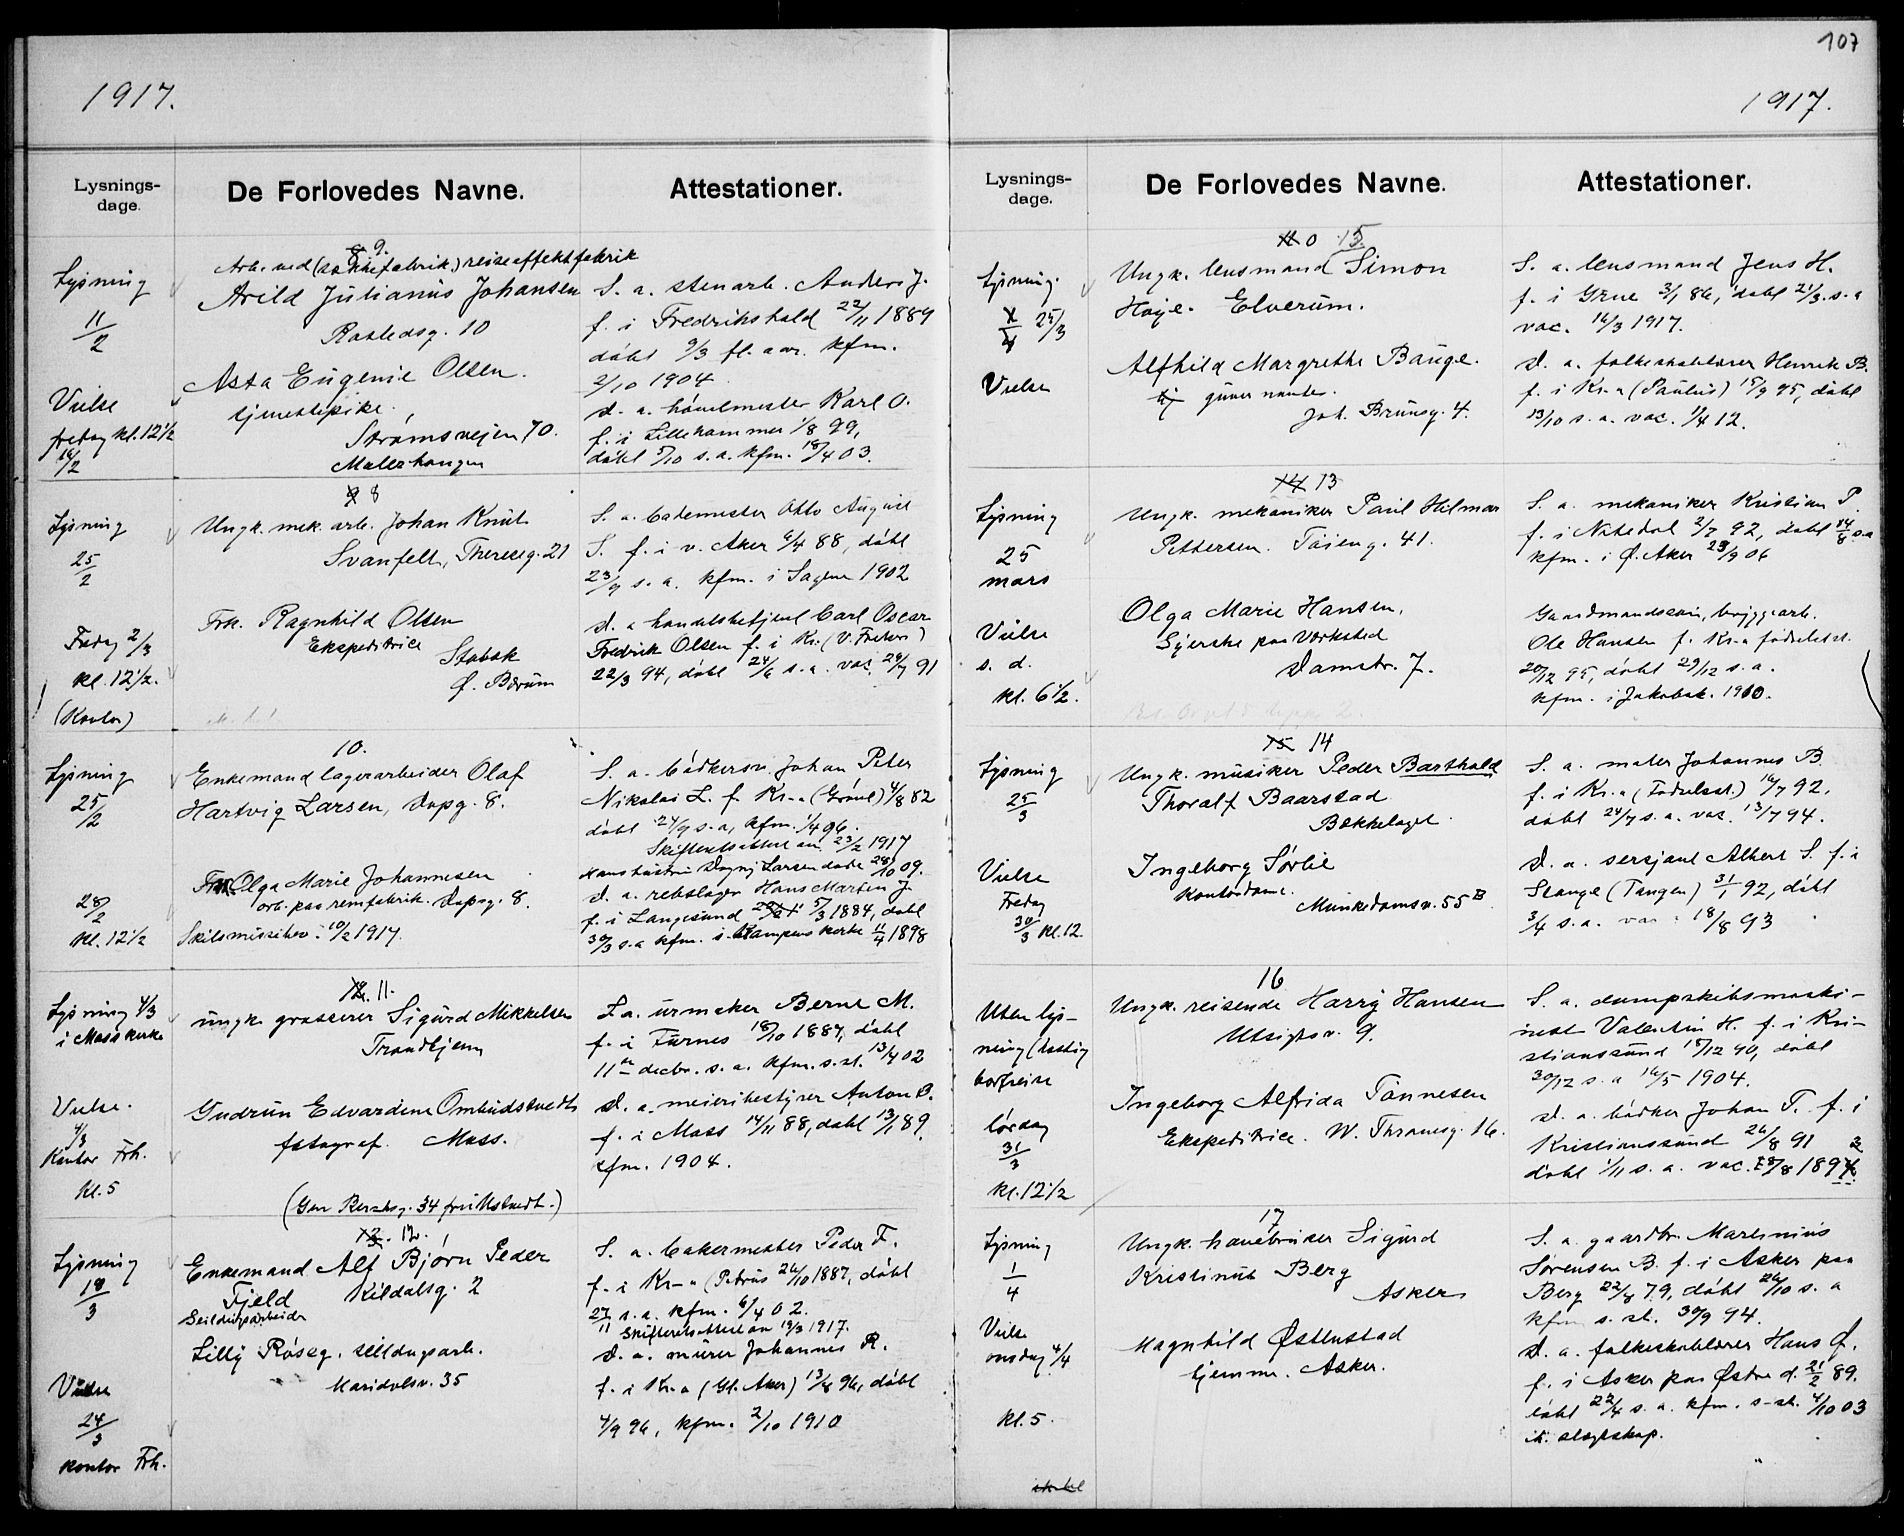 107
1917.
Lysnings-
dage.
De Forlovedes Navne.
Attestationer.
9.
Arb. ved reiseeffektfabrik
Lysning
Arild Julianus Johansen
S. a. stenarb. Anders J.
11/2
Rostedsg. 10
f. i Fredrikshald 22/11 1889
døbt 9/3 fl. aar. kfm.
Asta Eugenie Olsen.
2/10 1904.
Vielse
tjenestepike.
D. a. høvelmester Karl O.
fredag kl. 12 1/2
Strømsveien 70.
f. i Lillehammer 1/8 99,
16/2
Malerhaugen
døbt 5/10 s. a. kfm. 18/4 03.
8
Lysning
Ungk. mek. arb. Johan Knut
S. a. bademester Otto August
25/2
Svanfelt, Thereseg. 21
S. f. i v. Aker 6/4 88, døbt
23/9 s. a. kfm. i Sagene 1902
Frk. Ragnhild Olsen
D. a handelsbetjent Carl Oscar
Fredag 2/3
Ekspeditrice
Stabæk
Fredrik Olsen f. i Kr. (V. Frelser)
kl. 12 1/2.
Ø. Bærum
22/3 94, døbt 24/6 s. a. vac. 24/7 91
(Kontor)
10.
Lysning
Enkemand lagerarbeider Olaf
S. a. bødkersv. Johan Peter
25/2
Hartvig Larsen, Dapsg. 8.
Nikolai L. f. Kr.-a (Grønl) 4/8 82
døbt 24/9 s. a, kfm. 1/4 96.
Skifteretsattest av 23/2 1917
hans hustru Dagny Larsen døde 28/10 09.
Olga Marie Johannesen
D. a. rebslager Hans Martin J.
28/2
arb. paa remfabrik. Dapsg. 8.
f. i Langesund 5/3 1884, døbt
kl. 12 1/2
Skilsmissebev. 10/2 1917.
30/3 s. a kfm. i Kampens kirke 11/4 1898
11.
Lysning 4/3
ungk. grosserer Sigurd Mikkelsen
S. a. urmaker Bernt M.
i Moss kirke
Trondhjem
f. i Furnes 18/10 1887, døbt
11te decbr. s. a. kfm. s. st. 13/4 02
Vielse.
Gudrun Edvardine Ombudstvedt
D. a. meieribestyrer Anton O.
4/3
fotograf. Moss.
f. i Moss 14/11 88, døbt 13/1 89.
Kontor Frh.
kfm. 1904.
kl. 5
12.
Lysning
Enkemand Alf Bjørn Peder
S. a. bakermester Peder F.
18/3
Fjeld Kildalsg. 2
f. i Kr-a (Petrus 26/10 1887, døbt
Seildugsarbeider
27/11 s. a. kfm. 6/4 02.
Skifteretsattest av 19/3 1917.
Lilly Røseg. seildugsarb.
D. a. murer Johannes R.
Vielse
Maridalsv. 35
f. i Kr-a (Gl. Aker) 13/8 96, døbt
24/3
4/9 96, kfm. 2/10 1910
kontor Frh.
1917.
Lysnings-
dage.
De Forlovedes Navne.
Attestationer.
15.
Lysning.
Ungk. lensmand Simon
S. a. lensmand Jens H.
25/3
Hoye. Elverum.
f. i Grue 3/1 86, døbt 21/3 s. a
vac. 16/3 1917.
Vielse
Alfhild Margrethe Bauge.
D. a. folkeskolelærer Henrik B.
guvernante.
f. i Kr.-a (Paulus) 15/9 95, døbt
Joh. Brunsg. 4.
13/10 s. a. vac. 1/4 12.
13
Lysning
Ungk. mekaniker Paul Hilmar
S. a. mekaniker Kristian P.
25
Pettersen. Tøieng. 41.
f. i Nitedal 2/7 92, døbt 14/8 s. a
mars
kfm. i Ø. Aker 23/9 06
Vielse
Olga Marie Hansen.
s. d.
Syerske paa Værksted
Ole Hansen f. Kr.-a fødselsst.
kl. 6 1/2.
Damstr. 7.
20/12 95, døbt 29/12 s. a.
kfm. i Jakobsk. 1910.
14
Lysning
Ungk. musiker Peder Barthold
S. a. maler Johannes B.
25/3
Thoralf Baarstad
f. i Kr.-a (Fødselsst.) 16/7 92.
Bækkelaget.
døbt 24/7 s. a. vac. 13/7 94.
Vielse
Ingeborg Sørlie
D. a. sersjant Albert S. f. i
Fredag
Kontordame.
Stange (Tangen) 31/1 92, døbt
30/3 kl. 12.
Munkedamsv. 55 B
3/4 s. a. vac. 18/8 93
16
Uten lys-
Ungk. reisende Harry Hansen
S. a. dampskibsmaski-
ning (hastig
Utsigtsv. 9.
nist Valentin H. f. i Kri-
bortreise
stianssund 15/12 90, døbt
30/12 s. a 16/5 1904.
lørdag
Ingeborg Alfrida Tønnesen
D. a. bødker Johan T. f. i
31/3
Ekspeditrice. W. Thranesg. 16.
Kristianssund 26/8 91
kl. 12 1/2
døbt 1/11 s. a. vac.
17
Lysning
Ungk. havebruker Sigurd
S. a. gaardbr. Martinius
1/4
Kristinus Berg
Sørensen B. f. i Asker paa
Asker
Berg 22/8 79, døbt 26/10 s. a
kfm s. st. 30/9 94.
Vielse
Magnhild Østenstad
D. a. folkeskolelærer Hans Ø.
onsdag 4/4
hjemme. Asker.
f. i Asker paa Østre d. 21/2 89.
kl. 5.
døbt 22/4 s. a. kfm. s. st. 4/10 03
ik. slegtskap.